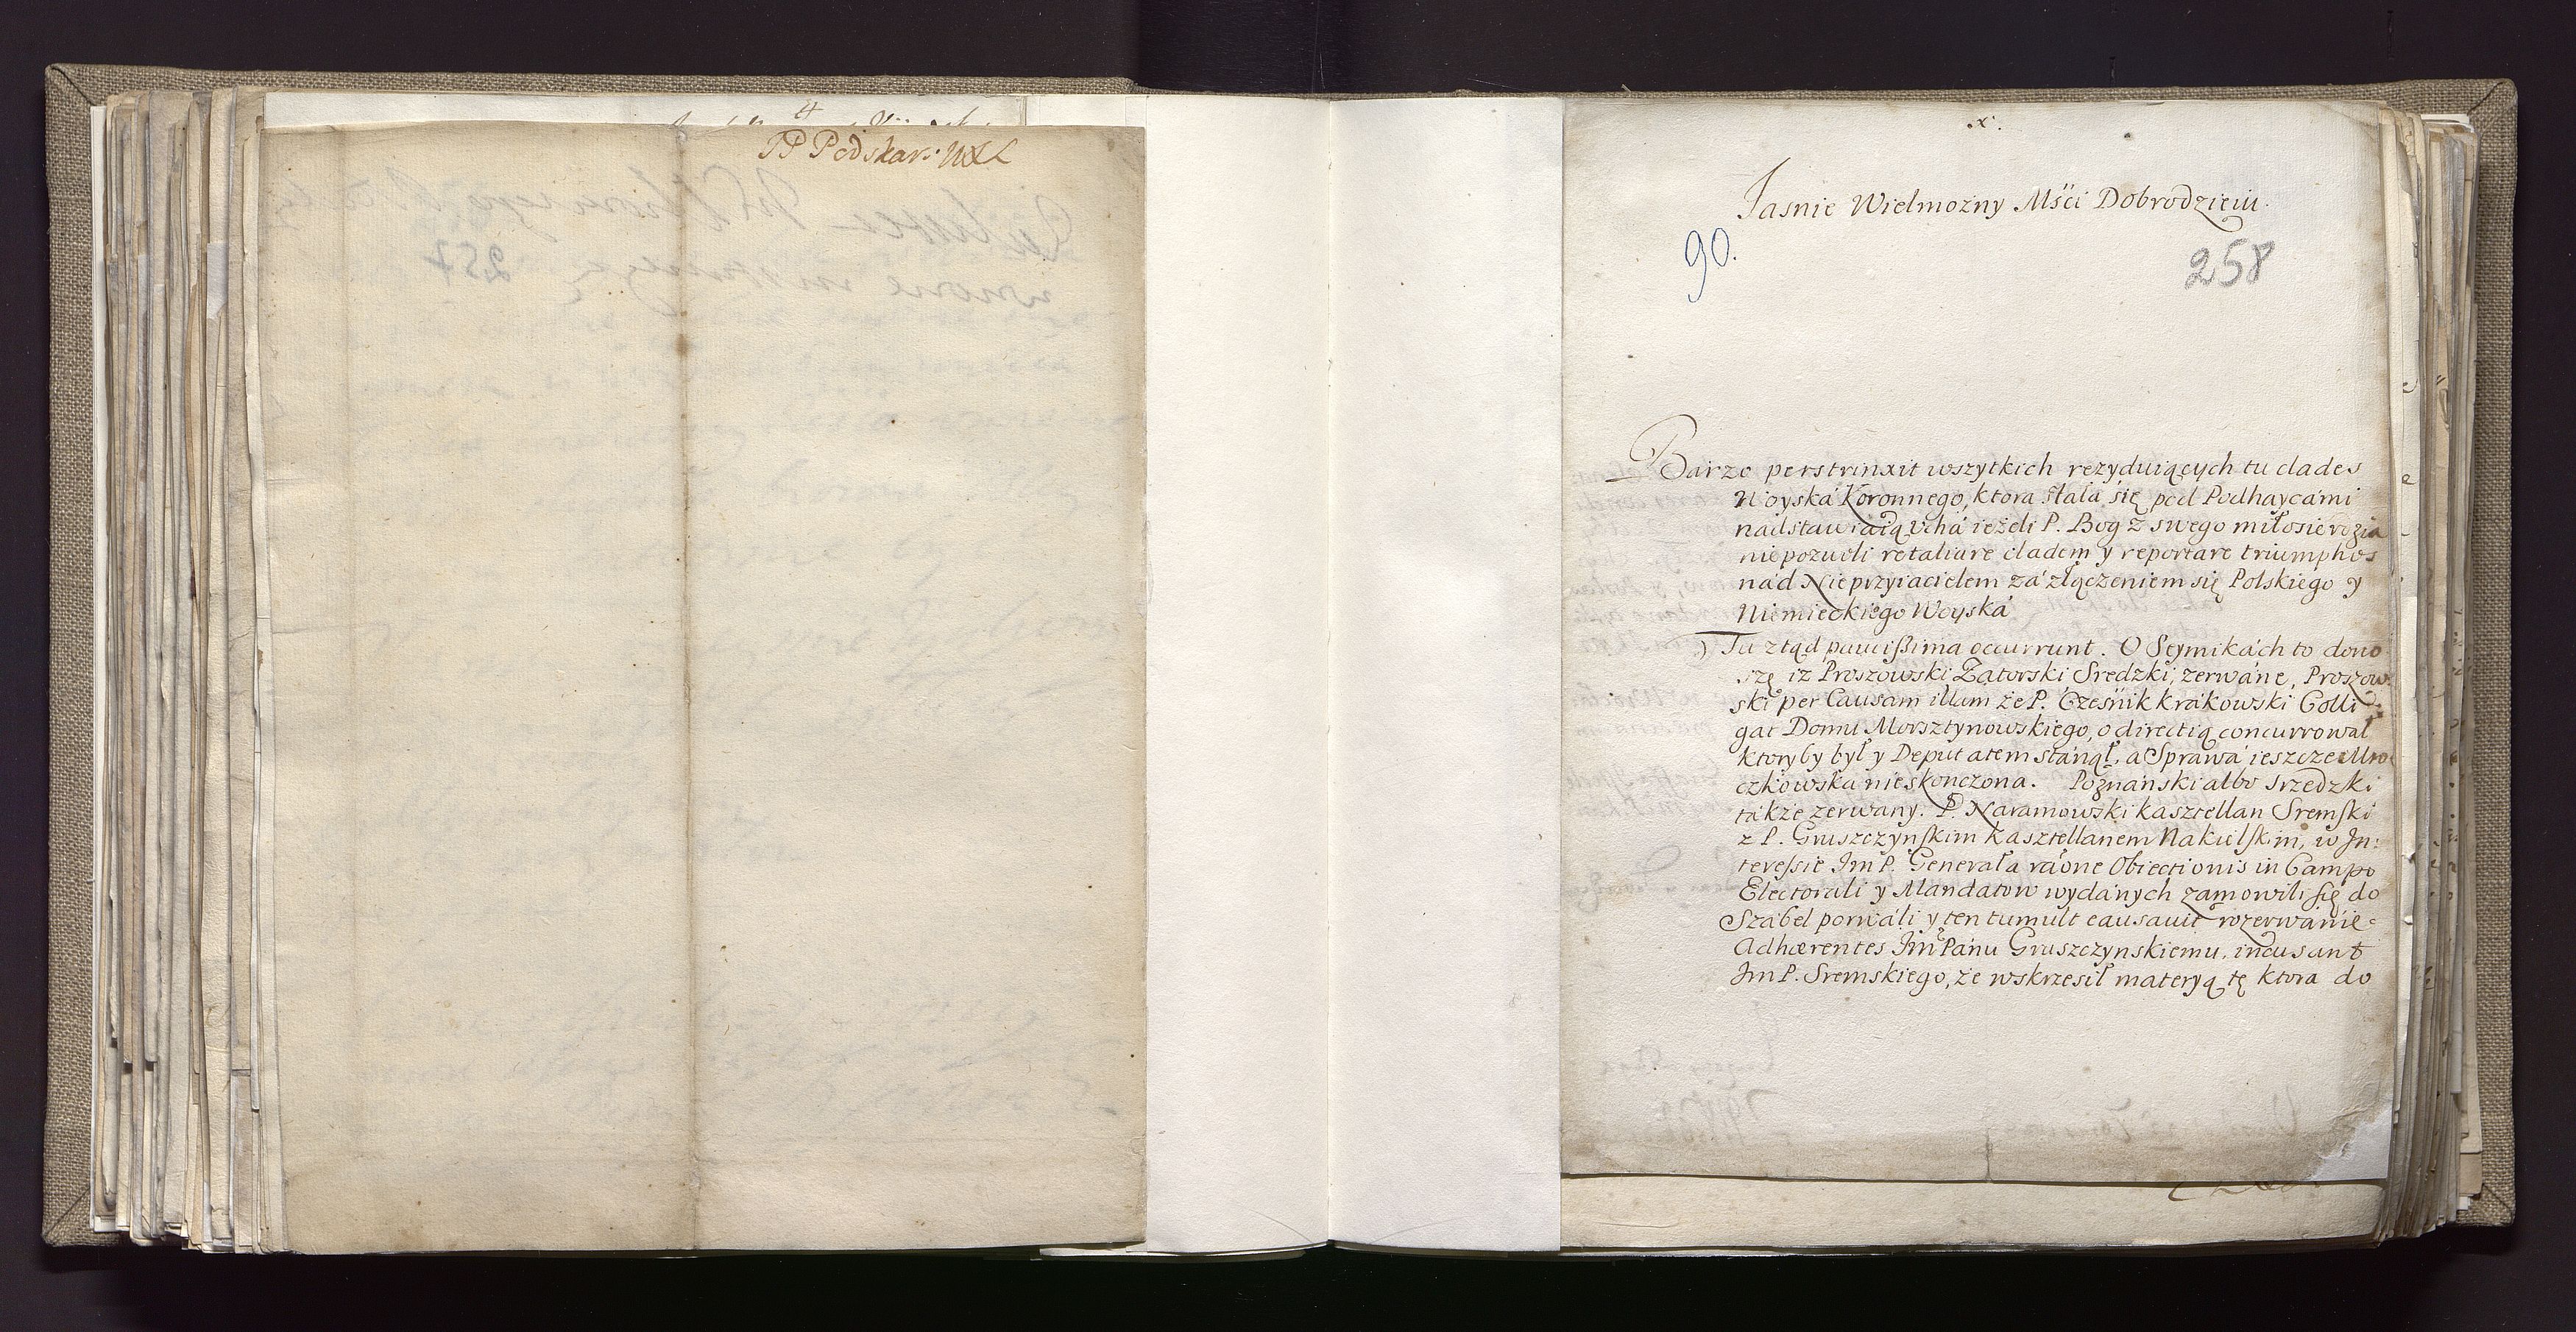 JP Podskar: WXL
x.
Jasnie Wielmożny Mści Dobrodzieiu.
90.
258
Barzo perstrinxit wszytkich rezyduiących tu clades
Woyská Koronnego, ktora stała się pod Podhaycámi
nádstawiáią vchá ieżeli P. Bog z swego miłosierdzia
niepozwoli retaliare cladem y reportare triumphos
nád Nieprzyiacielem zá złączeniem się Polskiego y
Niemieckiego Woyská
Tu ztąd paucissima occurrunt. O Seymikách to dono
szę iz Proszowski Zatorski Sredzki, zerwáne, Proszow
ski per Causam illam że P. Cześnik Krakowski Colli
gat Domu Morsztynowskiego, o directią concurrował
ktoryby był y Deputatem stánął, a Sprawá ieszcze Mro
czkowska nieskonczona. Poznánski albo Srzedzki
tákże zerwany. P. Naramowski kasztellan Sremski
z P. Gruszczynskim Kasztellanem Nakielskim, w In:
teressie Im P. Generała raōne Obiectionis in Campo
Electorali y Mandatow wydánych zamowili się do
Szábel porwáli y ten tumult causavit rozerwánie
Adhærentes Im Pánu Gruszczynskiemu, incusant
Im P. Sremskiego, że wskrzesił materyą tę ktora do